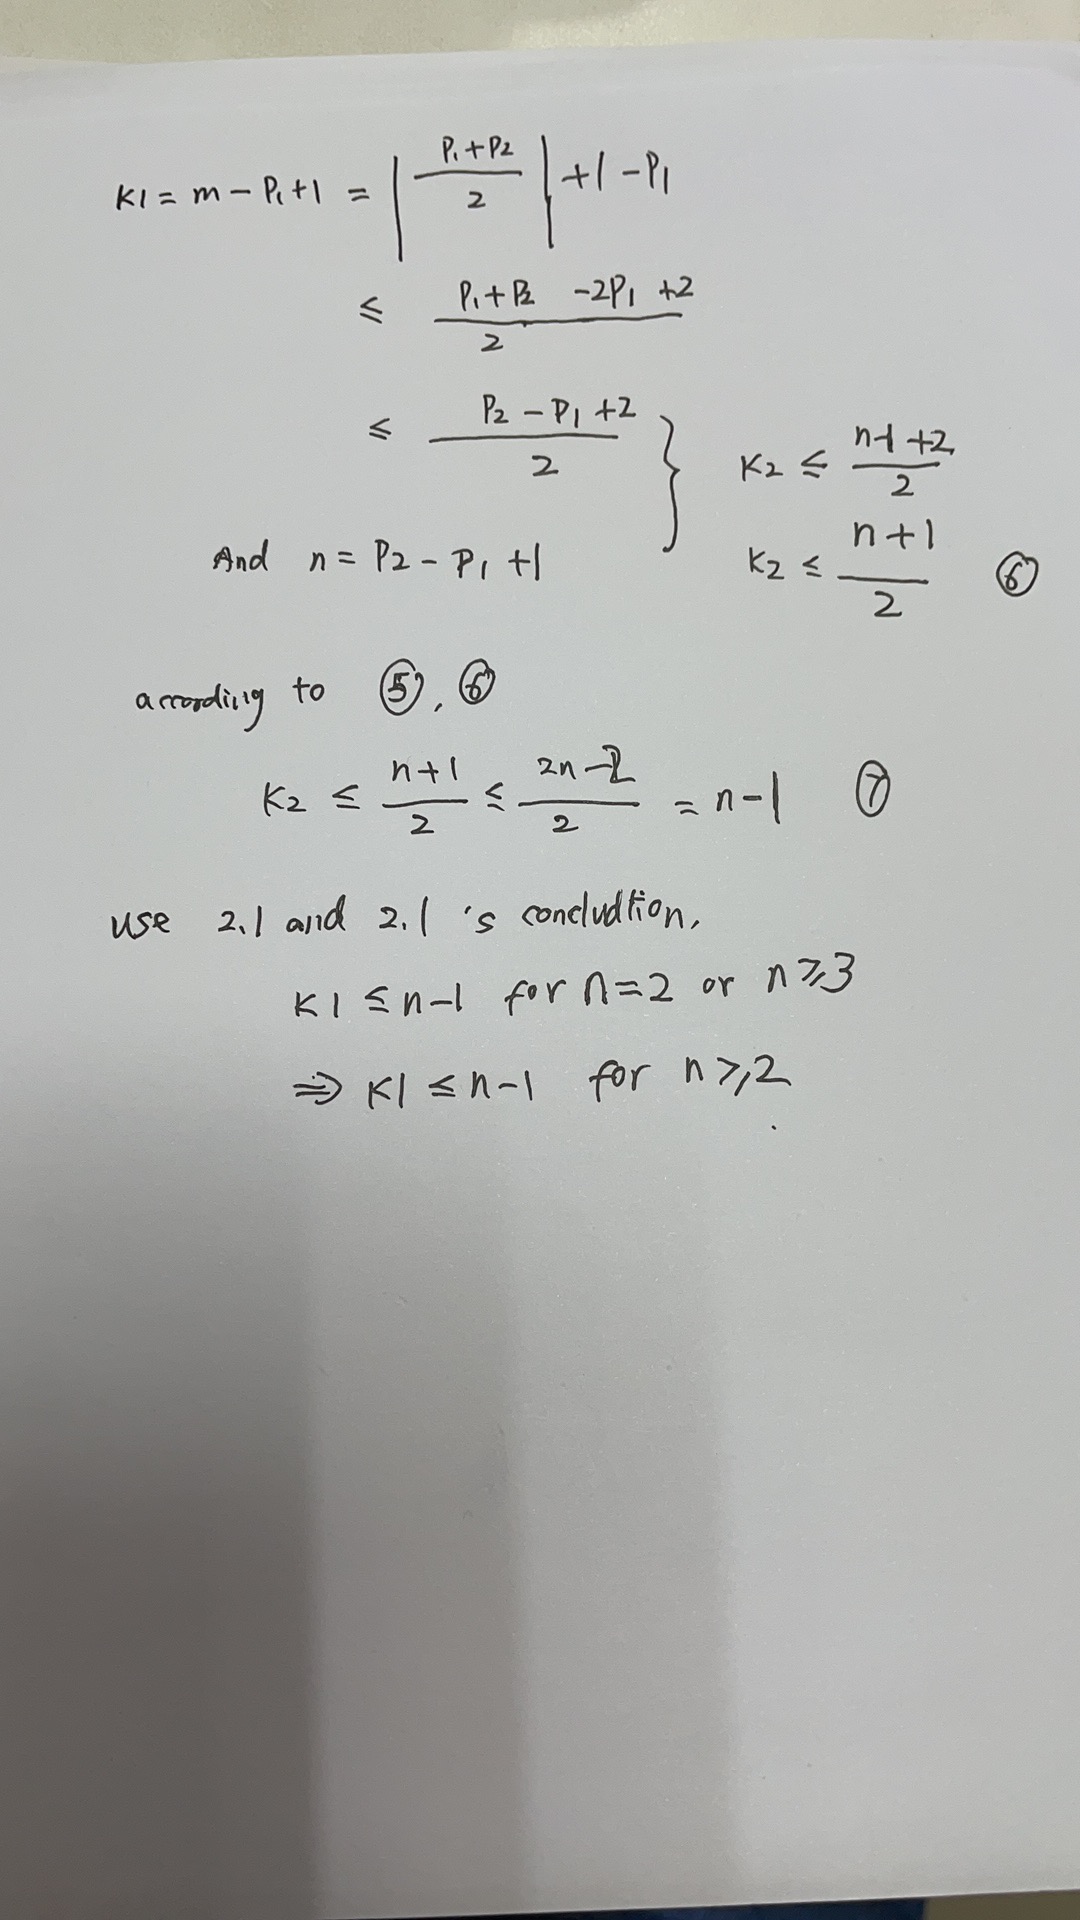 K1 = m - P1 + 1 = | (P1 + P2)/2 | + 1 - P1
≤ (P1 + P2 - 2P1 + 2)/2
≤ (P2 - P1 + 2)/2
And n = P2 - P1 + 1
} K2 ≤ (n-1+2)/2
K2 ≤ (n+1)/2 ⑥
according to ⑤, ⑥
K2 ≤ (n+1)/2 ≤ (2n-2)/2 = n-1 ⑦
use 2.1 and 2.1 's concludtion,
K1 ≤ n-1 for n=2 or n≥3
⇒ K1 ≤ n-1 for n≥2